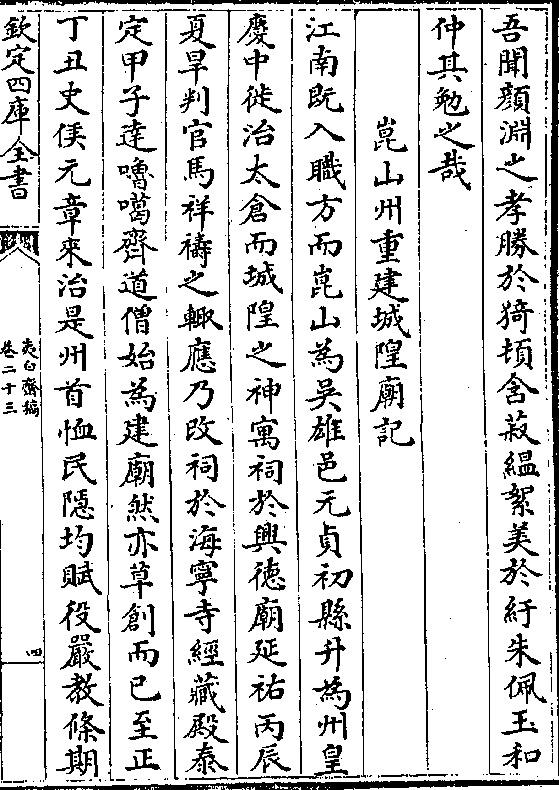 吾聞顔淵之孝勝於猗頓含菽緼絮美於紆朱佩玉和
仲其勉之哉
崑山州重建城隍廟記
江南既入職方而崑山為吳雄邑元貞初縣升為州皇
慶中徙治太倉而城隍之神寓祠於興德廟延祐丙辰
夏旱判官馬祥禱之輙應乃改祠於海寧寺經藏殿泰
定甲子達嚕噶齊道僧始為建廟然亦草創而已至正
丁丑史侯元章來治是州首恤民隠均賦役嚴教條期
欽定四庫全書
夷白齋稿
卷二十三
四